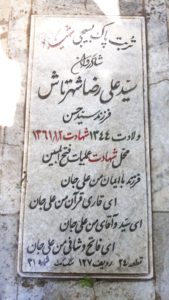 تربت پاک بسیجی شهید
شادروان
سیّد علی رضا شهرتاش
فرزند سید حسن
ولادت ۱۳۴۴ شهادت ۱۳۶۱/۱/۲
محل شهادت عملیات فتح المبین
فرزند با ایمان من علی جان
ای قاری قرآن من علی جان
ای سید و آقای من علی جان
ای فاتح و شانی من علی جان
قطعه ۲۴ ردیف ۱۲۷ شماره ۳۱